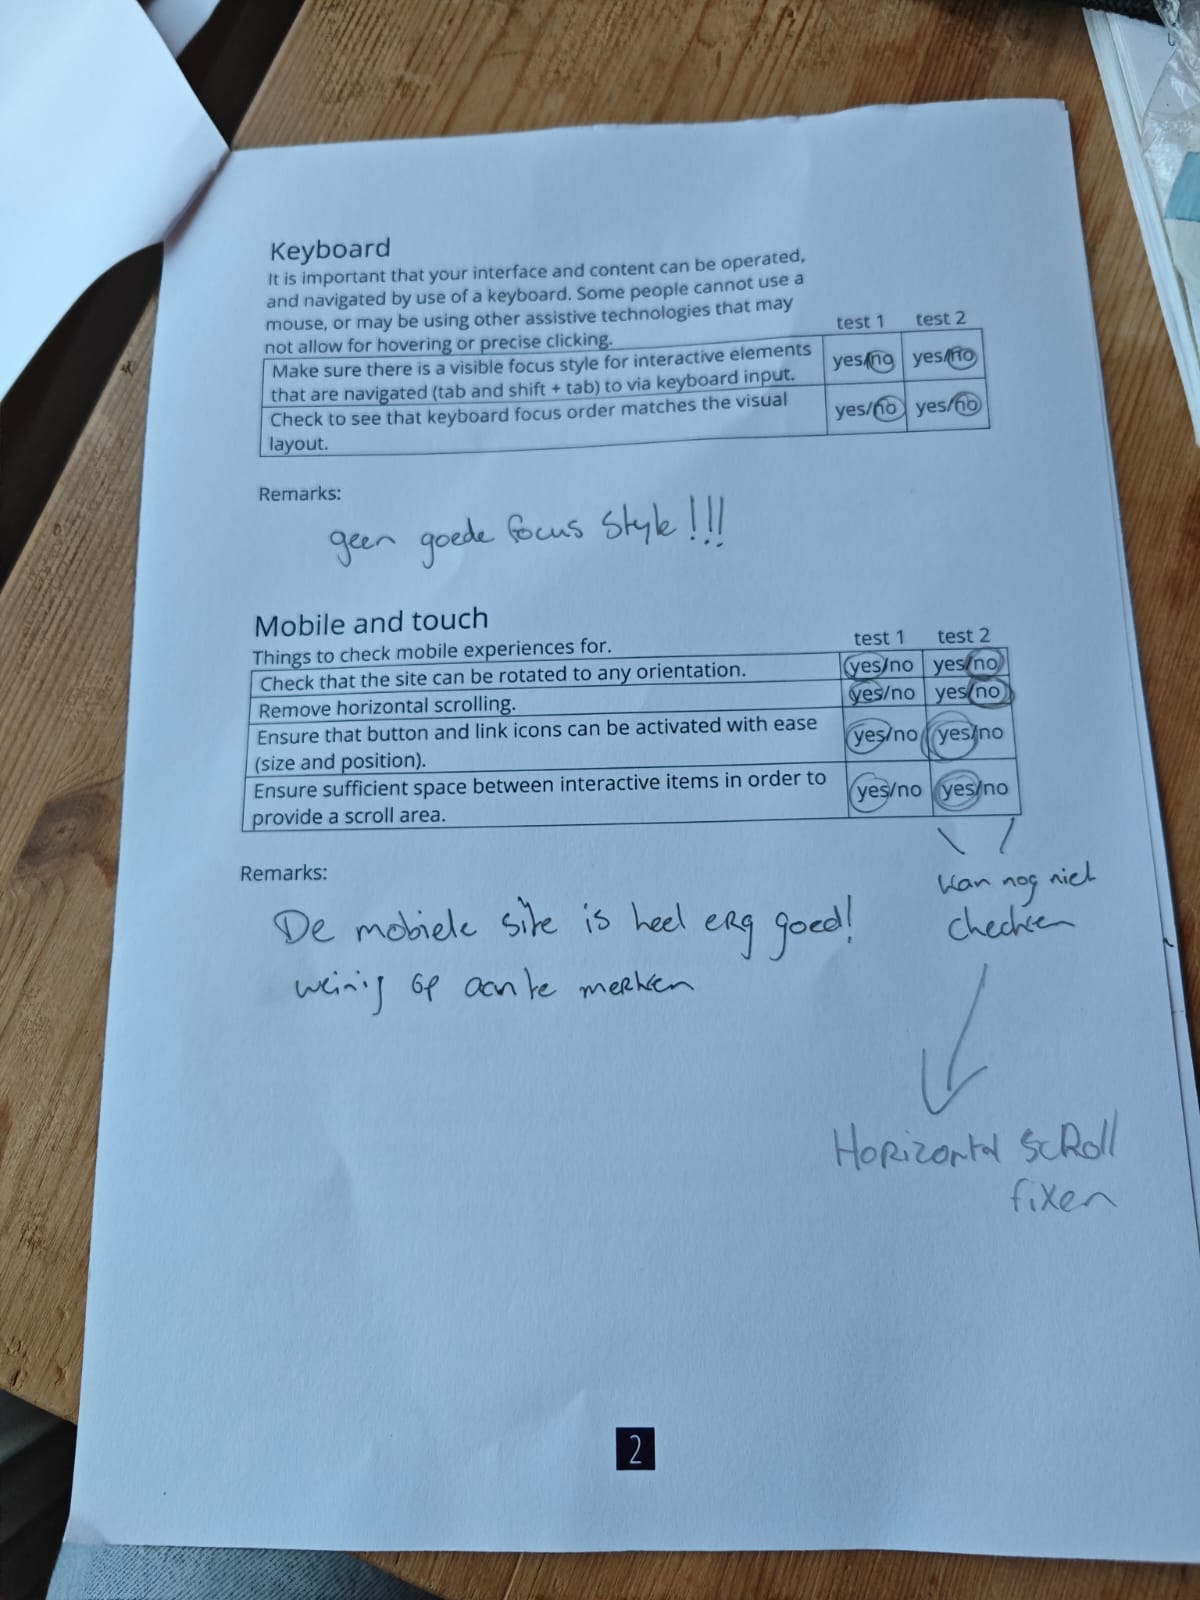 Keyboard
It is important that your interface and content can be operated,
and navigated by use of a keyboard. Some people cannot use a
mouse, or may be using other assistive technologies that may
not allow for hovering or precise clicking.
test 1 test 2
Make sure there is a visible focus style for interactive elements
that are navigated (tab and shift + tab) to via keyboard input.
yes/no yes/no
Check to see that keyboard focus order matches the visual
layout.
yes/no yes/no
Remarks:
geen goede focus style!!!
Mobile and touch
Things to check mobile experiences for.
test 1 test 2
Check that the site can be rotated to any orientation.
yes/no yes/no
Remove horizontal scrolling.
yes/no yes/no
Ensure that button and link icons can be activated with ease
(size and position).
yes/no yes/no
Ensure sufficient space between interactive items in order to
provide a scroll area.
yes/no yes/no
Remarks:
De mobiele site is heel erg goed!
weinig op aan te merken
kan nog niet
checken
Horizontal scroll
fixen
2